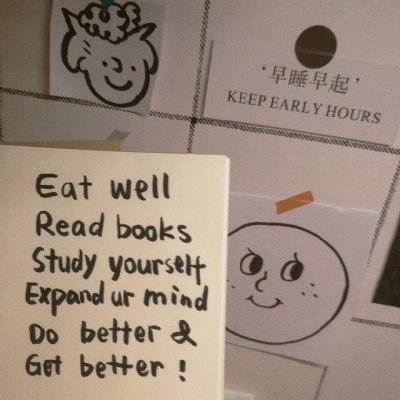 ‘早睡早起’
KEEP EARLY HOURS
Eat well
Read books
Study yourself
Expand ur mind
Do better &
Get better !